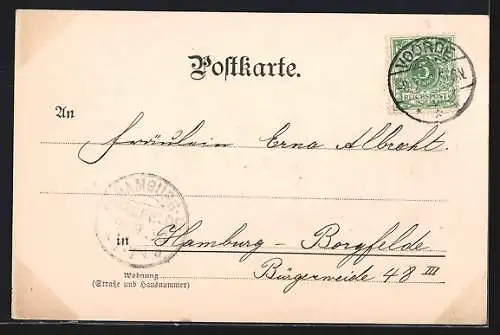 Postkarte.
VOORDE
5
REICHSPOST
An
Fräulein Erna Albrecht
HAMBURG
in Hamburg - Borgfelde
Wohnung
(Straße und Hausnummer)
Bürgerweide 48 III